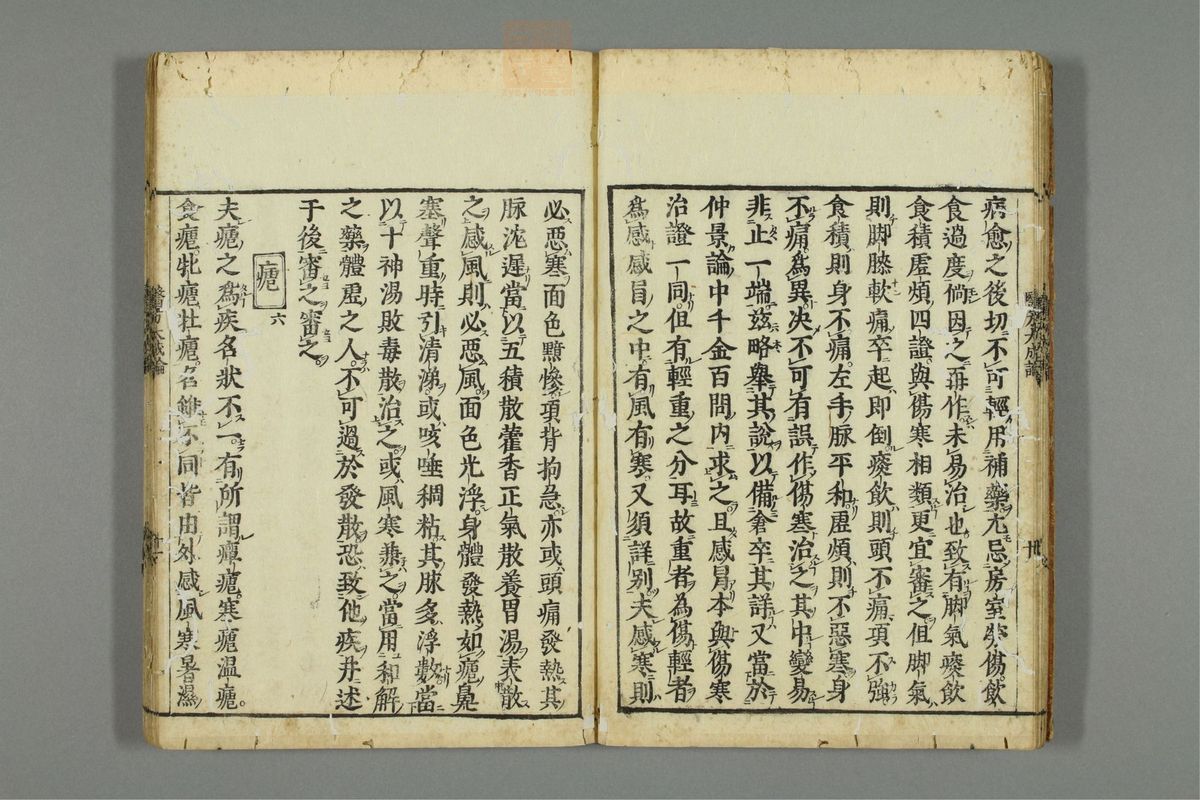 病愈之後切不可輕用補藥尤忌房室勞傷飲
食過度倘因之再作未易治也致有脚氣痰飲
食積虛煩四證與傷寒相類更宜審之但脚氣
則脚膝軟痛卒起即倒痰飲則頭不痛項不強
食積則身不痛左手脉平和虛煩則不惡寒身
不痛爲異决不可有誤作傷寒治之其中變易
非止一端玆略舉其說以備倉卒其詳又當於
仲景論中千金百問内求之且感冒本與傷寒
治證一同但有輕重之分耳故重者為傷輕者
爲感感冒之中有風有寒又須詳别夫感寒則
必惡寒面色黲慘項背拘急亦或頭痛發熱其
脉沈遲當以五積散藿香正氣散養胃湯表散
之感風則必惡風面色光浮身體發熱如瘧鼻
塞聲重時引清涕或咳唾稠粘其脉多浮數當
以十神湯敗毒散治之或風寒兼之當用和解
之藥體虛之人不可過於發散恐致他疾并述
于後審之審之
瘧 六
夫瘧之爲疾名狀不一有所謂癉瘧寒瘧温瘧
食瘧牝瘧牡瘧名雖不同皆由外感風寒暑濕